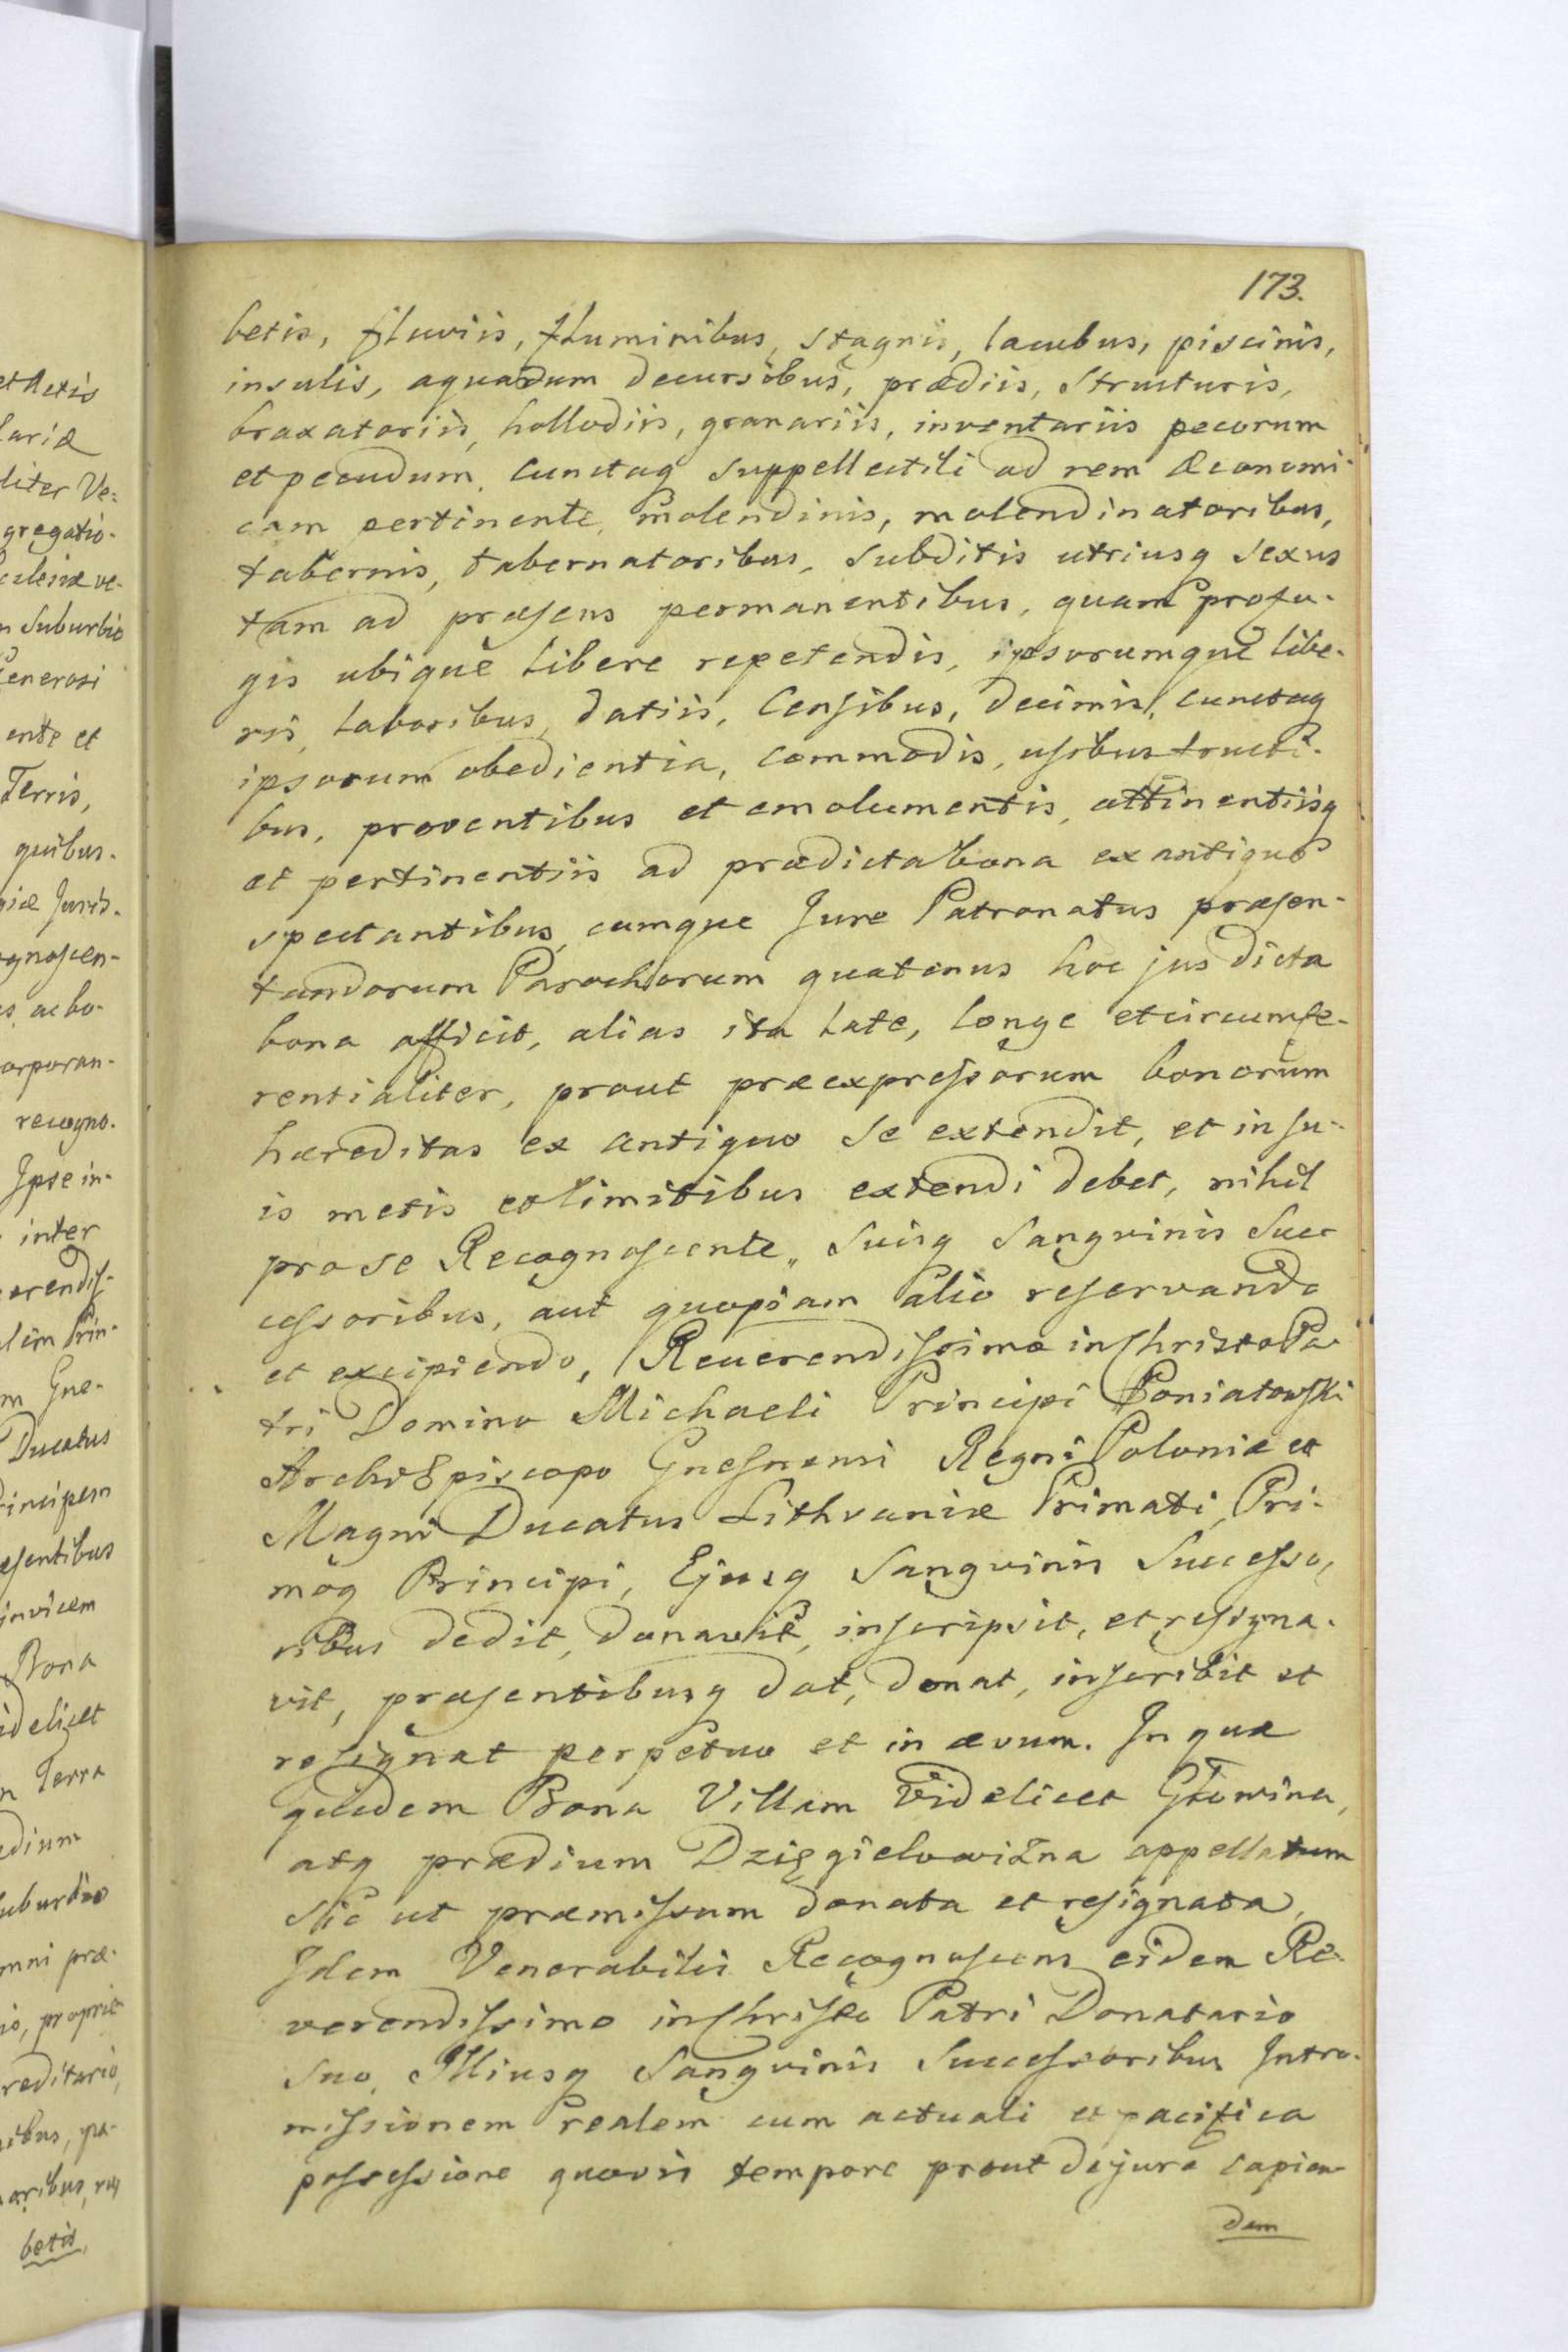 173.
betis, fluviis, fluminibus, stagnis, lacubus, piscinis,
insulis, aquarum decursibus, prædiis, structuris,
braxatoriis, hollodiis, granariis, inventariis pecorum
et pecudum, cunctaq suppellectili ad rem Œconomi-
cam pertinente, molendinis, molendinatoribus,
tabernis, tabernatoribus, subditis utriusq sexus
tam ad præsens permanentibus, quam profu-
gis ubique libere repetendis, ipsorumque libe-
ris, laboribus, datiis, Censibus, decimis, cunctaq
ipsorum obedientia, commodis, usibus fructi-
bus, proventibus et emolumentis, attinentiisq
et pertinentiis ad prædicta bona ex antiquo
spectantibus, cumque Jure Patronatus præsen-
tandorum Parochorum quatenus hoc jus dicta
bona afficit, alias ita late, longe et circumfe-
rentialiter, prout præexpressorum bonorum
hæreditas ex antiquo se extendit, et in su-
is metis et limitibus extendi debet, nihil
pro se Recognoscente, Suisq Sangvinis Suc-
cessoribus, aut quopiam alio reservando
et excipiendo, Reverendissimo in Christo Pa-
tri Domino Michaeli Principi Poniatowski
ArchiEpiscopo Gnesnensi Regni Poloniæ et
Magni Ducatus Lithvaniæ Primati, Pri-
moq Principi, Ejusq Sangvinis Successo-
ribus dedit, donavit, inscripsit, et resigna-
vit, præsentibusq dat, donat, inscribit et
resignat perpetuo et in ævum. In quæ
quidem Bona Villam videlicet Głowina,
atq prædium Dzięgielowizna appellatum
sic ut præmissum donata et resignata,
Idem Venerabilis Recognoscens eidem Re-
verendissimo in Christo Patri Donatario
suo, Illiusq Sangvinis Successoribus Intro-
missionem realem cum actuali et pacifica
possessione quovis tempore prout de jure capien-
dam
et Actis
lariæ
liter Ve=
gregatio-
cclesiæ ve-
n Suburbio
Generosi
ente et
Terris,
quibus-
giæ Juris-
ognoscen-
ac bo-
orporan-
recogno-
Ipse in-
inter
erendis-
lem Prin-
m Gne-
Ducatus
rincipem
æsentibus
invicem
Bona
idelicet
n Terra
edium
uburbio
mni præ-
io, proprie-
reditario,
ibus, pa-
oribus, ru
betis,